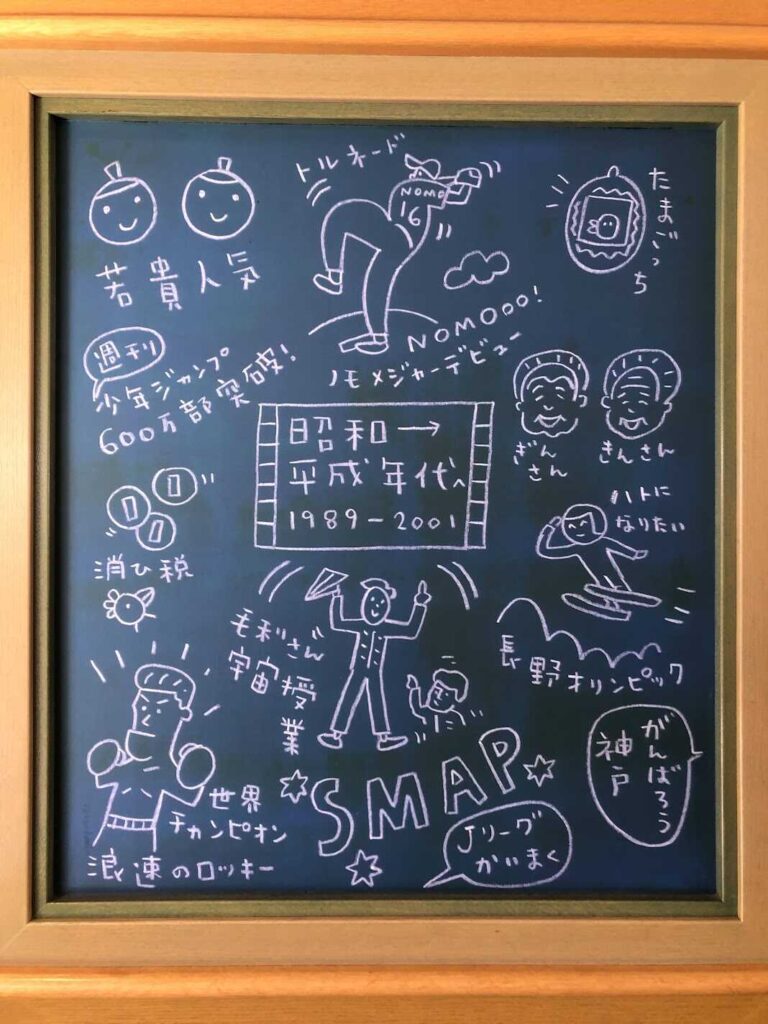 トルネード
NOMO
16
たまごっち
若貴人気
NOMOoo!
ノモメジャーデビュー
週刊
少年ジャンプ
600万部突破!
ぎん
さん
きんさん
昭和→
平成年代へ
1989-2001
ハトに
なりたい
消ひ税
毛利さん
宇宙授業
長野オリンピック
がんばろう
神戸
SMAP
Jリーグ
かいまく
世界
チャンピオン
浪速のロッキー